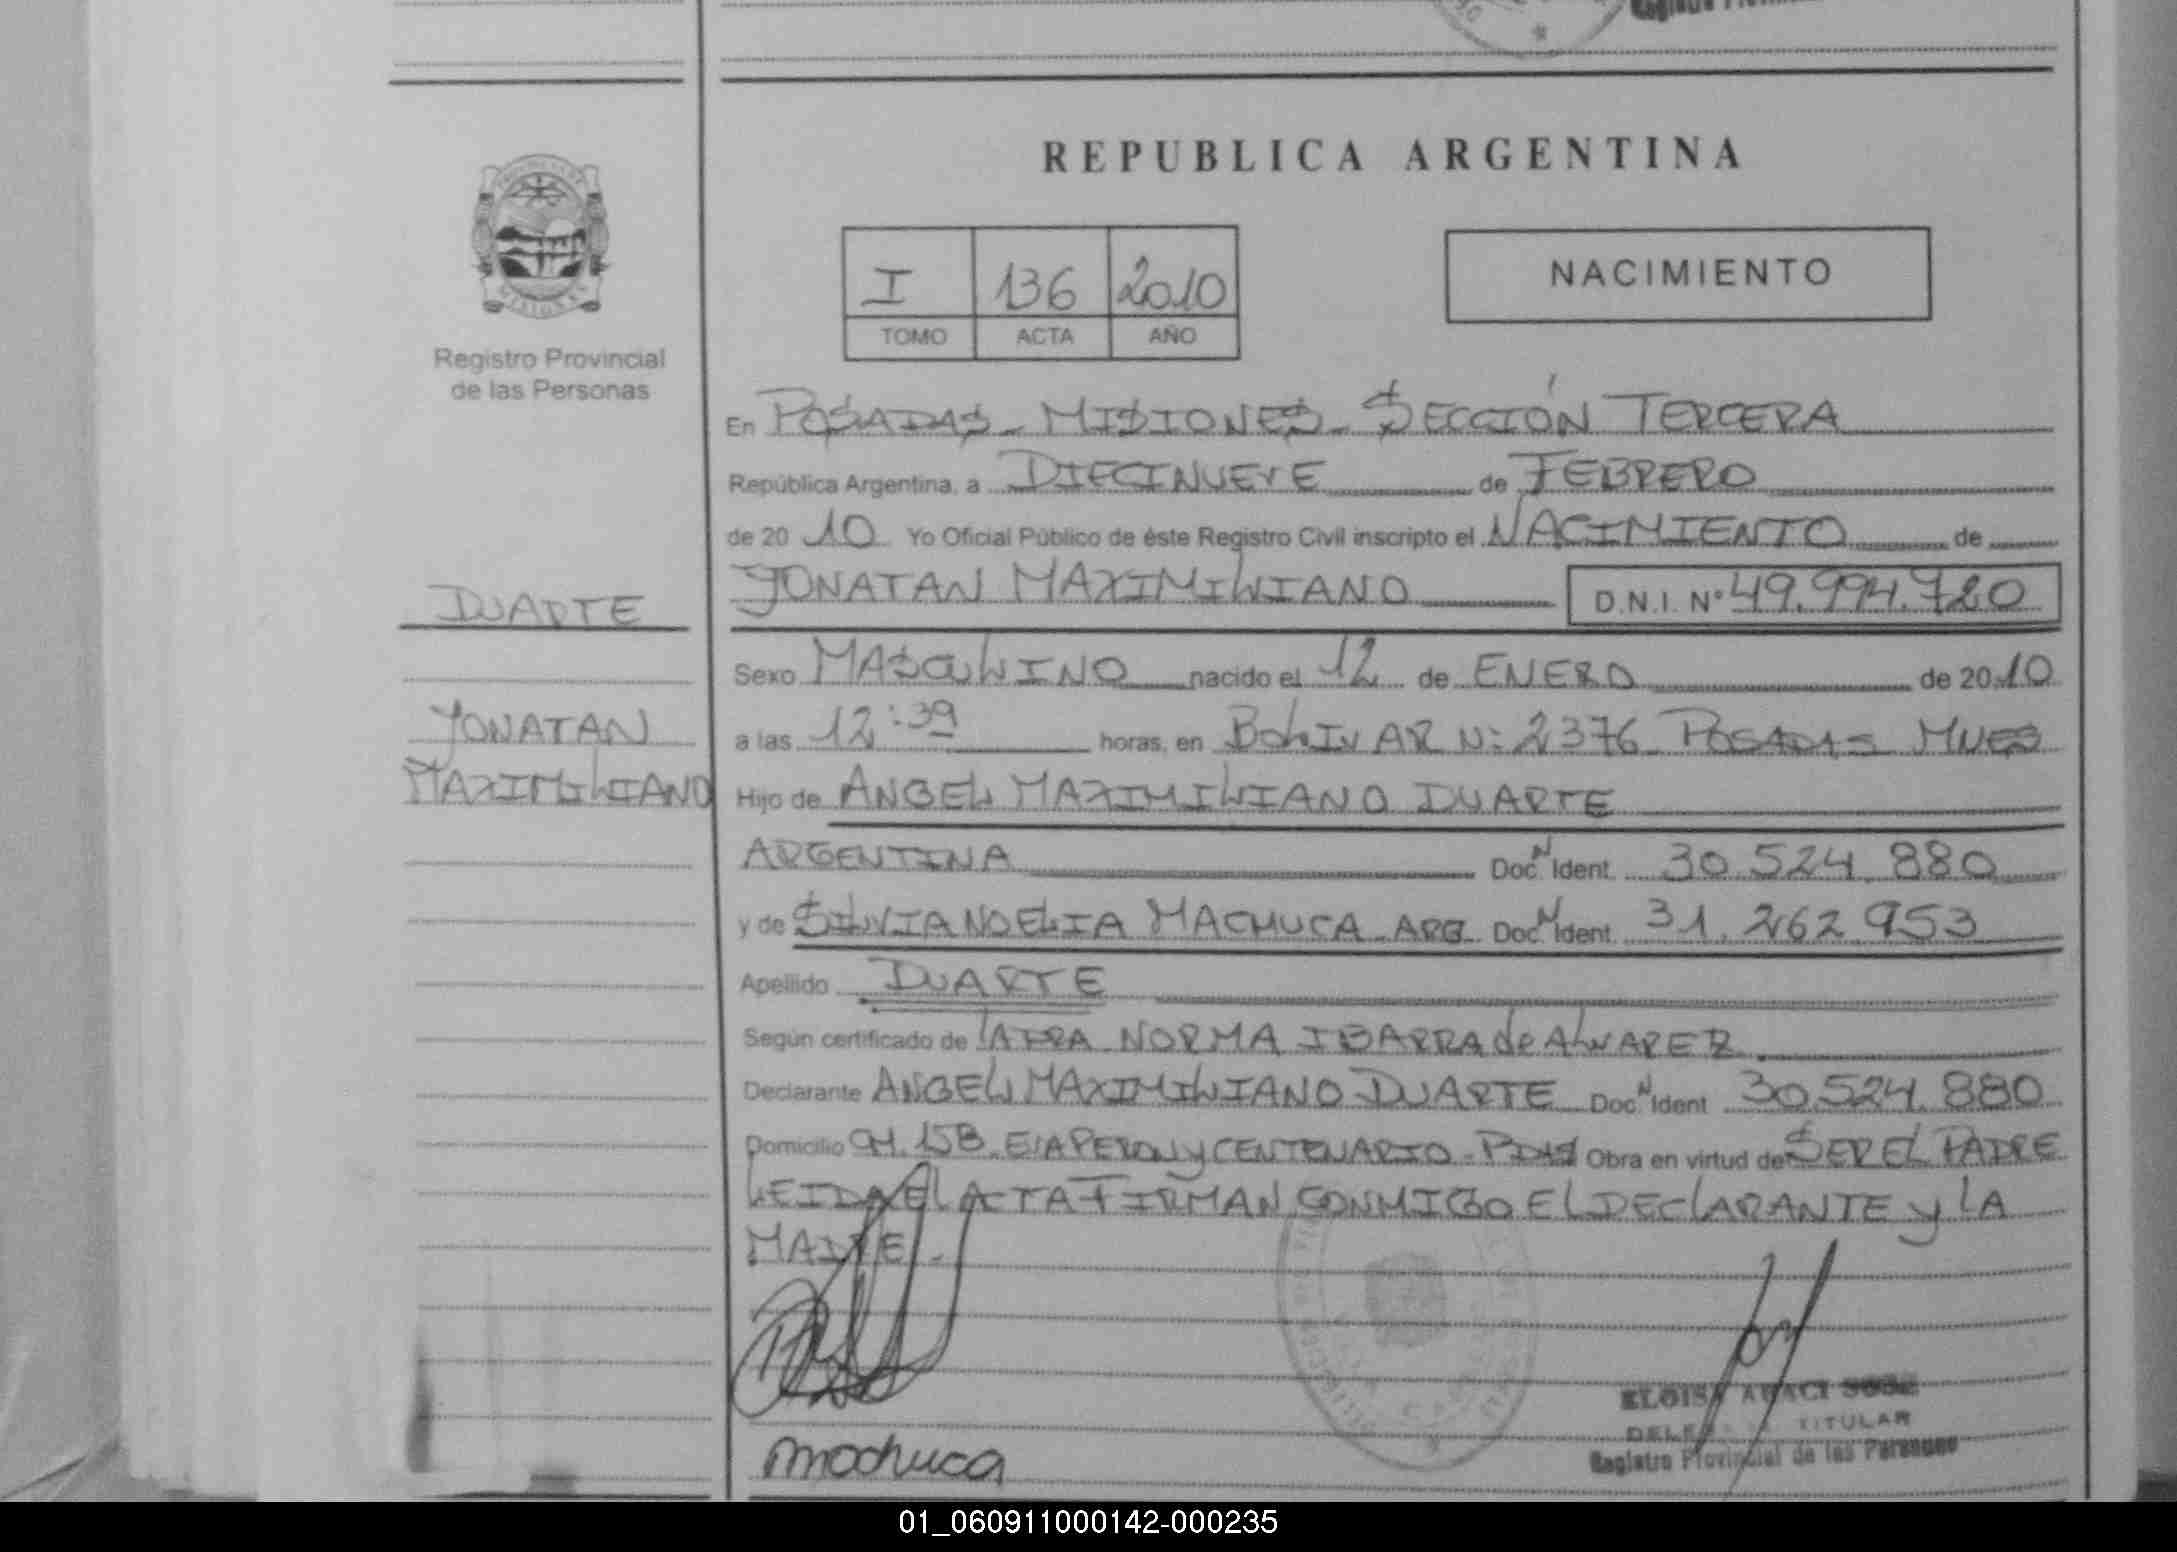 REPUBLICA ARGENTINA
I 136 2010
TOMO ACTA AÑO
NACIMIENTO
Registro Provincial
de las Personas
En POSADAS - MISIONES - SECCIÓN TERCERA
República Argentina, a DIECINUEVE de FEBRERO
de 20 10 Yo Oficial Público de éste Registro Civil inscripto el NACIMIENTO de
DUARTE
YONATAN MAXIMILIANO D.N.I. Nº 49.994.720
Sexo MASCULINO nacido el 12 de ENERO de 20 10
YONATAN
MAXIMILIANO
a las 12:39 horas, en BOLIVAR Nº 2376 POSADAS MNES
Hijo de ANGEL MAXIMILIANO DUARTE
ARGENTINA Doc. N Ident. 30.524.880
y de SILVIA NOELIA MACHUCA ARG. Doc. N Ident. 31.262.953
Apellido DUARTE
Según certificado de NORMA IBARRA de ALVAREZ
Declarante ANGEL MAXIMILIANO DUARTE Doc. N Ident 30.524.880
Domicilio CH. 158 EVA PERON y CENTENARIO - PDAS Obra en virtud de SER EL PADRE
LEIDA EL ACTA FIRMAN CONMIGO EL DECLARANTE y LA
MADRE.
machuca
ELOISA
TITULAR
Registro Provincial de las Personas
01_060911000142-000235